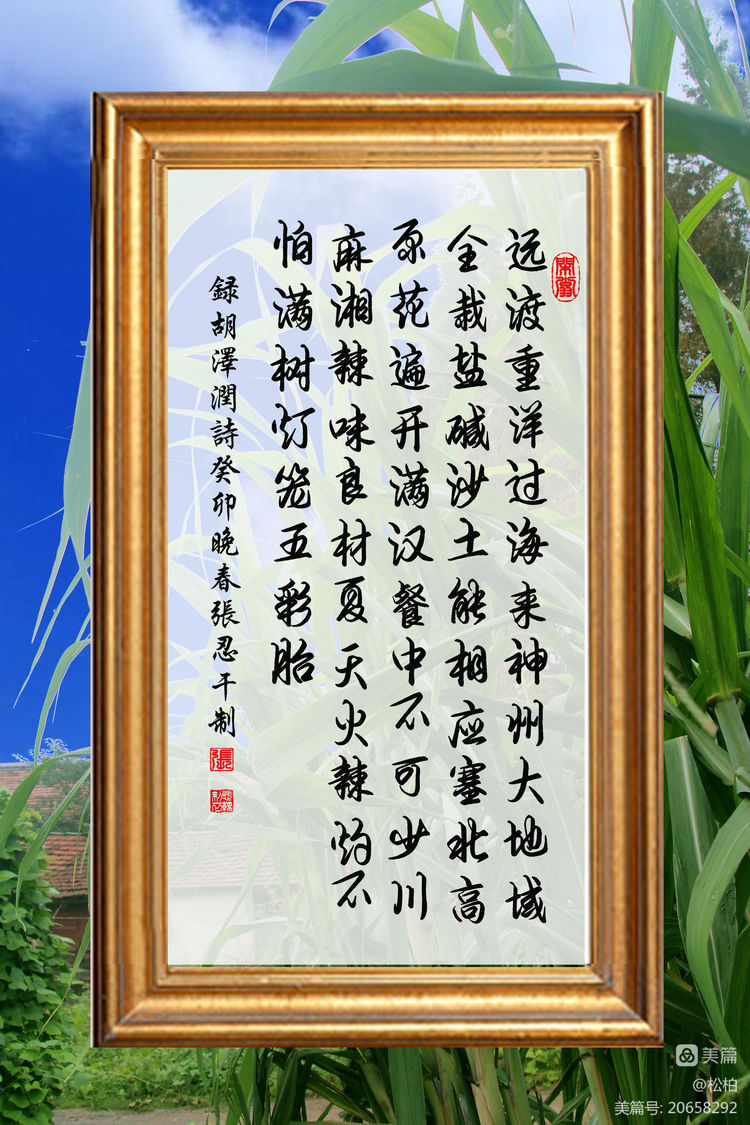 远渡重洋过海来神州大地域
全栽盐碱沙土能相应塞北高
原花遍开满汉餐中不可少川
麻湘辣味良材夏天火辣灼不
怕满树灯笼五彩胎
録胡澤潤詩癸卯晚春張忍干制
張
美篇
@松柏
美篇号: 20658292